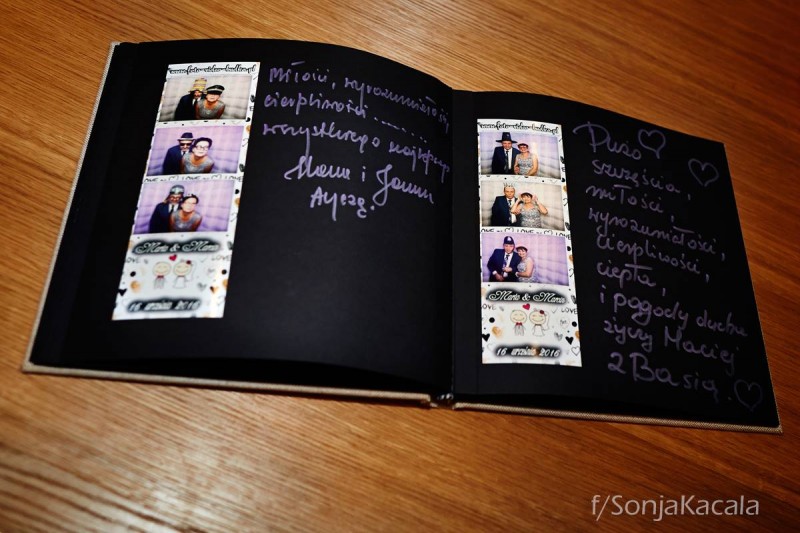 www.foto-video-budka.pl
LOVE
Marta & Marcin
16 września 2016
Miłości, wyrozumiałości,
cierpliwości.........
wszystkiego najlepszego
i
życzą.
www.foto-video-budka.pl
LOVE
Marta & Marcin
LOVE
16 września 2016
Dużo
szczęścia,
miłości,
wyrozumiałości,
cierpliwości,
ciepła,
i pogody ducha
życzy Maciej
z Basią.
f/SonjaKacala